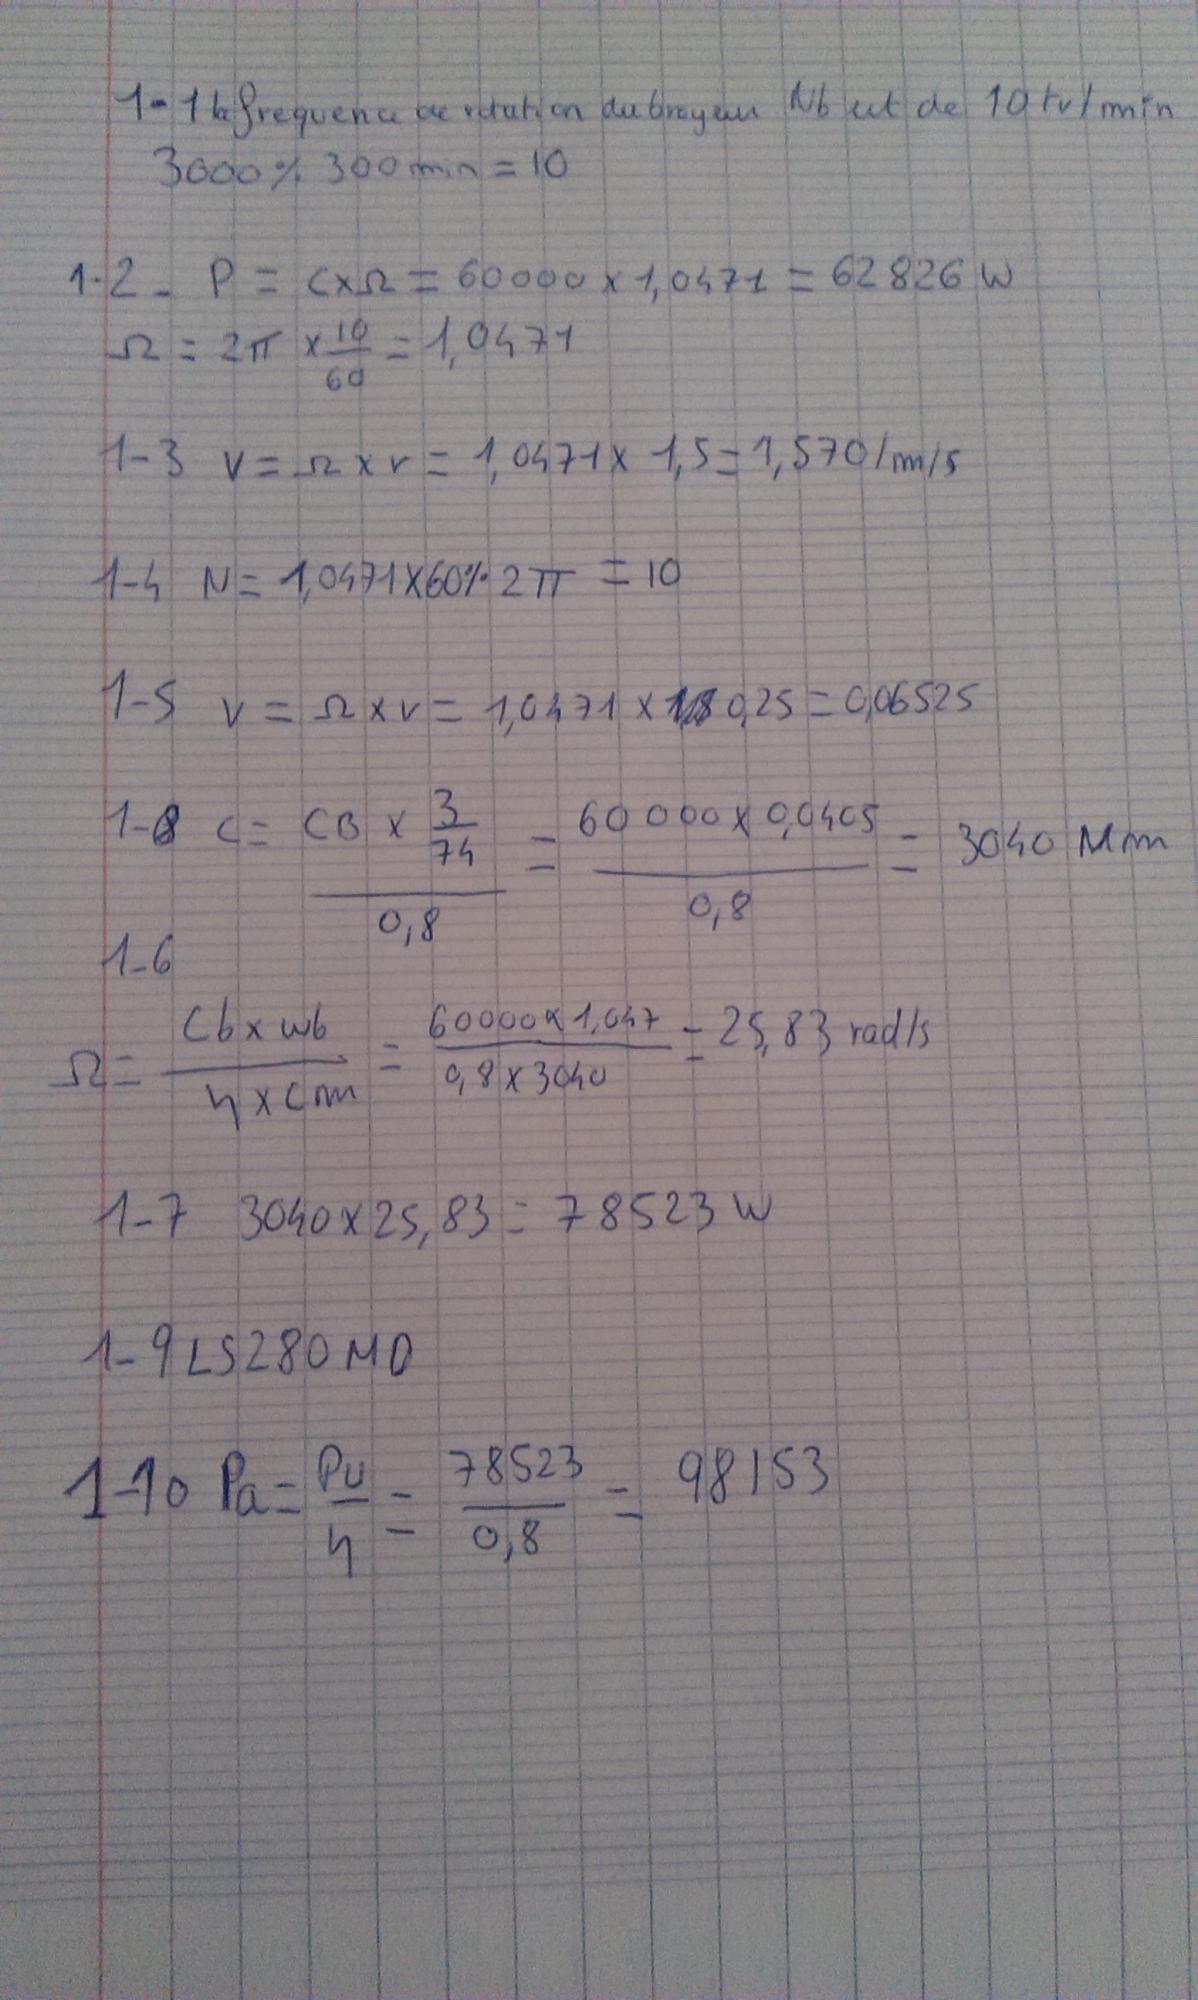 1-1 la frequence de rotation du broyeur Nb est de 10 tr/min
3000 % 300 min = 10
1-2- P = C x Ω = 60000 x 1,0471 = 62826 W
Ω = 2π x 10/60 = 1,0471
1-3 V = Ω x r = 1,0471 x 1,5 = 1,570 /m/s
1-4 N = 1,0471 x 60 % 2π = 10
1-5 V = Ω x r = 1,0471 x 0,25 = 0,06525
1-8 C = (CB x 3/74)/0,8 = (60000 x 0,0405)/0,8 = 3040 Mm
1-6
Ω = (Cb x wb)/(η x Cm) = (60000 x 1,047)/(0,8 x 3040) = 25,83 rad/s
1-7 3040 x 25,83 = 78523 W
1-9 LS280MD
1-10 Pa = Pu/η = 78523/0,8 = 98153